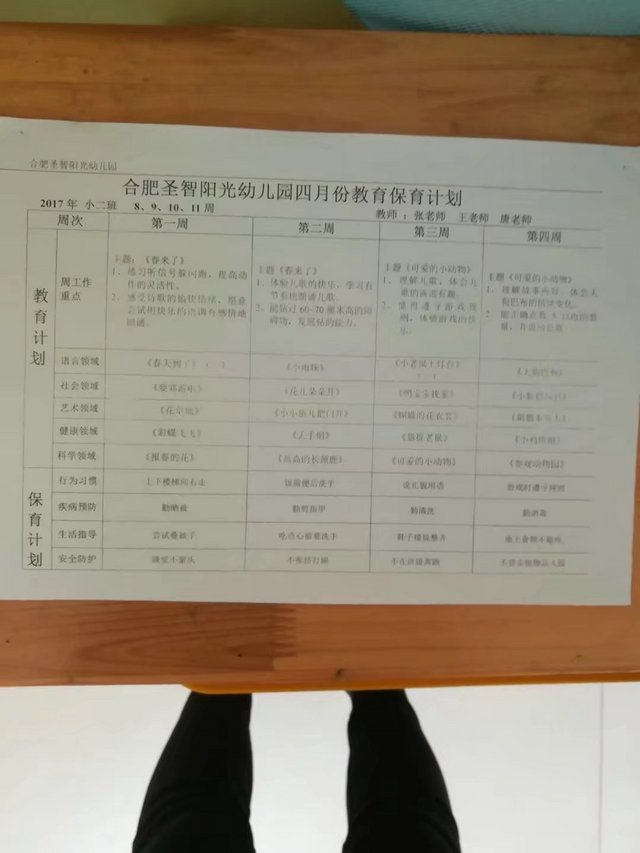 合肥圣智阳光幼儿园
合肥圣智阳光幼儿园四月份教育保育计划
2017年 小二班 8、9、10、11周 教师：张老师 王老师 唐老师
周次 第一周 第二周 第三周 第四周
教育计划
周工作重点
主题：《春来了》
1、练习听信号躲闪跑，提高动作的灵活性。
2、感受诗歌的愉快情绪，愿意尝试用快乐的语调有感情地朗诵。
主题《春来了》
1、体验儿歌的快乐，学习有节奏朗诵儿歌。
2、能钻过60-70厘米高的障碍物，发展钻的能力。
主题《可爱的小动物》
1、理解儿歌，体会儿歌的
2、懂得遵守游戏规则，体验游戏的快乐。
主题《可爱的小动物》
1、理解故事内容，体会
2、能正确点数5以内的数量，并说出总数
语言领域 《春天到了》 《小雨珠》
社会领域 《花儿朵朵开》
艺术领域 《蝴蝶的花衣裳》
健康领域 《彩蝶飞飞》 《丢手绢》
科学领域 《报春的花》 《高高的长颈鹿》 《可爱的小动物》 《参观动物园》
保育计划
行为习惯 上下楼梯向右走 饭前便后洗手 说礼貌用语 游戏时遵守规则
疾病预防 勤晒被 勤剪指甲 勤清洗 勤消毒
生活指导 尝试叠被子 吃点心前要洗手 鞋子摆放整齐 地上食物不能吃
安全防护 睡觉不蒙头 不推挤打闹 不在班级奔跑 不带尖锐物品入园